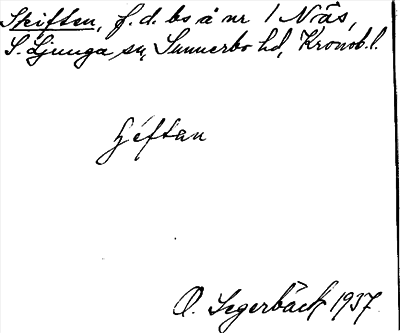 Skiftan, f.d. bs å nr 1 Näs,
S. Ljunga sn, Sunnerbo hd, Kronob.l.
ʃéftan
O. Segerbäck 1937.